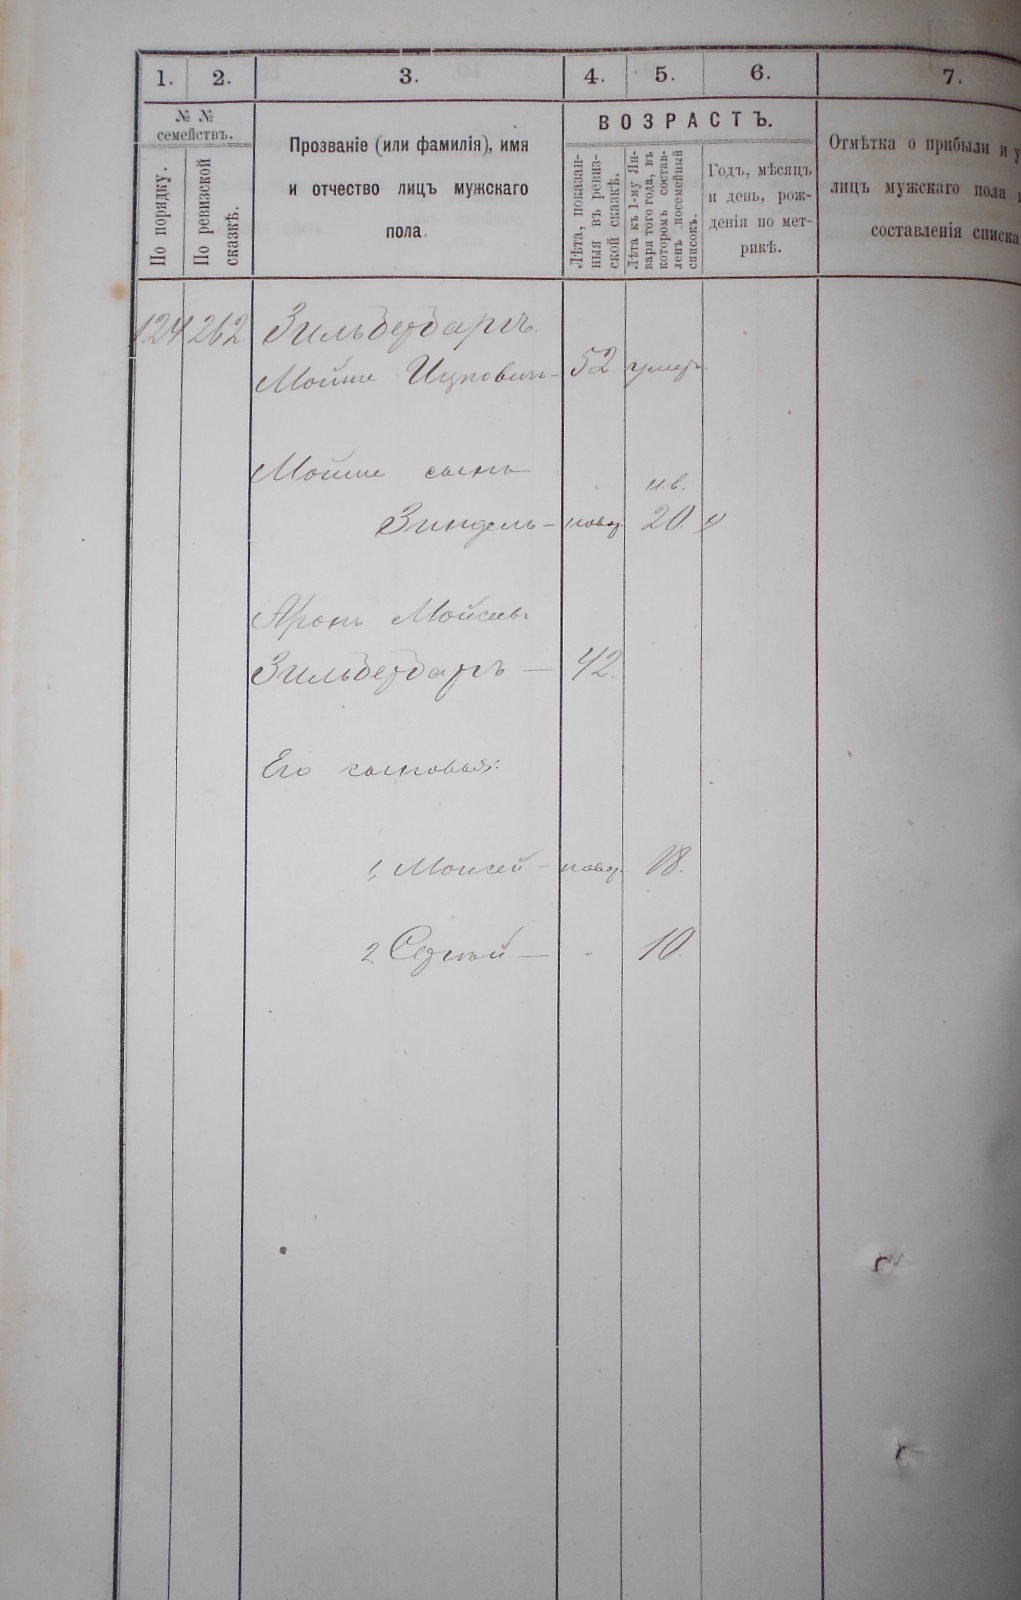 1. 2. 3. 4. 5. 6. 7.
№ №
семействъ.
По порядку.
По ревизской
сказкѣ.
Прозваніе (или фамилія), имя
и отчество лицъ мужскаго
пола.
ВОЗРАСТЪ.
Лѣта, показан-
ныя въ ревиз-
ской сказкѣ.
Лѣта къ 1-му Ян-
варя того года, въ
которомъ состав-
ленъ посемейный
списокъ.
Годъ, мѣсяцъ
и день, рож-
денія по мет-
рикѣ.
Отмѣтка о прибыли и у
лицъ мужскаго пола
составленія списка
124 262 Зильбербаргъ.
Мойше Ицковичъ - 52. умер.
Мойше сынъ
н.в.
Зиндель - новор 20.
Аронъ Мойсеев
Зильбербаргъ — 42.
Его сыновья:
1, Моисей - новор. 18.
2. — „ 10.